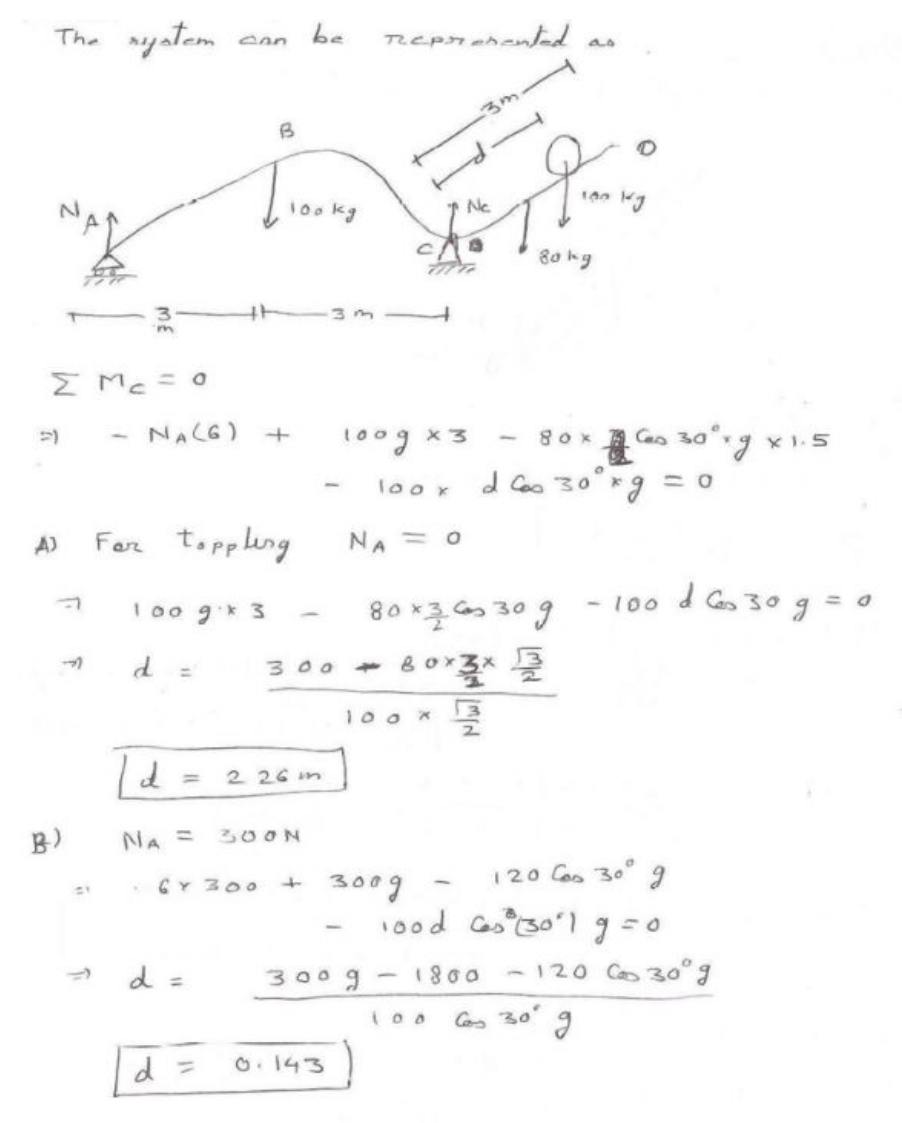 The system can be represented as
3m
d
B
D
N_A
100 kg
N_C
100 kg
C
80 kg
3 m
3 m
Σ M_C = 0
⇒ - N_A(6) + 100g × 3 - 80 × Cos 30° × g × 1.5
- 100 × d Cos 30° × g = 0
A) For toppling N_A = 0
⇒ 100 g × 3 - 80 × 3/2 Cos 30 g - 100 d Cos 30 g = 0
⇒ d = (300 - 80 × 3/2 × √3/2) / (100 × √3/2)
d = 2 26 m
B) N_A = 300N
⇒ - 6 × 300 + 300g - 120 Cos 30° g
- 100d Cos (30°) g = 0
⇒ d = (300g - 1800 - 120 Cos 30° g) / (100 Cos 30° g)
d = 0.143